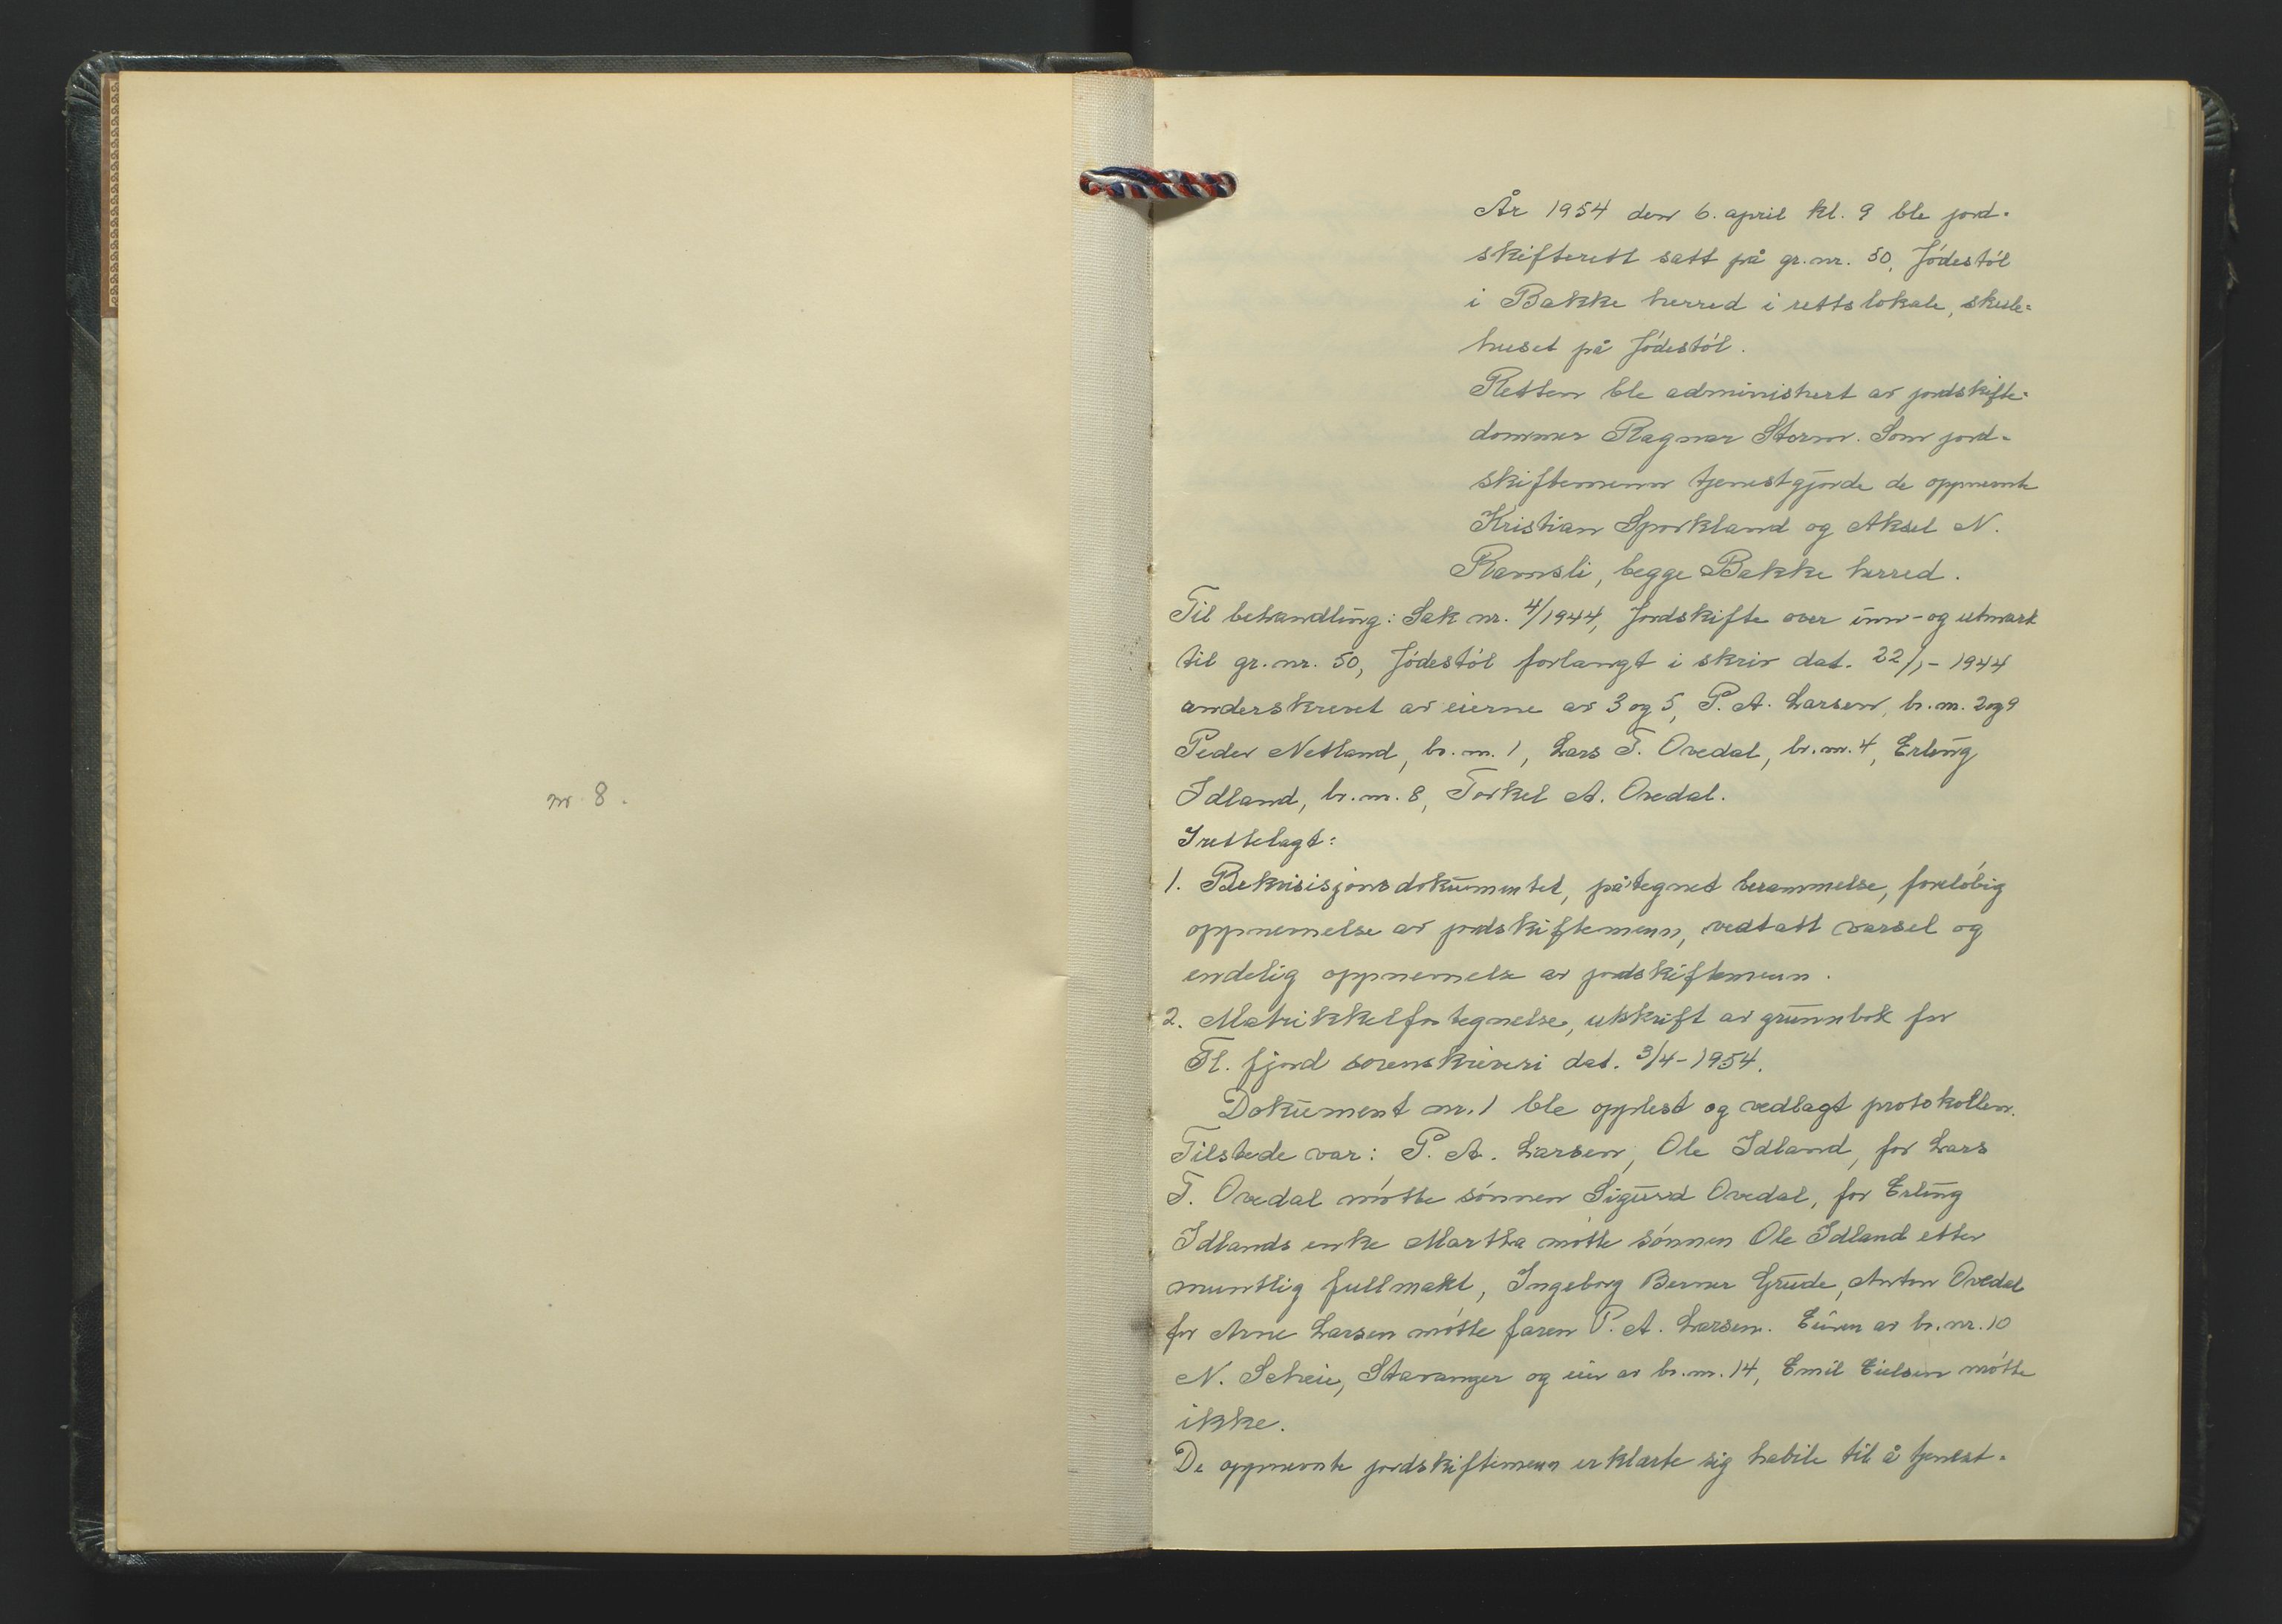 nr. 8.
År 1954 den 6. april kl. 9 ble jord-
skifterett satt på gr.nr. 50, Jødestøl
i Bakke herred i rettslokale, skule-
huset på Jødestøl.
Retten ble administrert av jordskifte-
dommer Ragnar Storm. Som jord-
skiftemenn tjenestgjorde de oppnevnte
Kristian Sporkland og Aksel N.
Ramsli, begge Bakke herred.
Til behandling: Sak nr. 4/1944, Jordskifte over inn- og utmark
til gr.nr. 50, Jødestøl forlangt i skriv dat. 22/1-1944
underskrevet av eierne av 3 og 5, P. A. Larsen, br.nr. 2 og 9
Peder Netland, br.nr. 1, Lars T. Ovedal, br.nr. 4, Erling
Idland, br.nr. 8, Torkel A. Ovedal.
Irettelagt:
1. Rekvisisjonsdokumentet, påtegnet berammelse, foreløbig
oppnemnelse av jordskiftemenn, vedtatt varsel og
endelig oppnemnelse av jordskiftemenn.
2. Matrikkelfortegnelse, utskrift av grunnbok for
Fl. fjord sorenskriveri dat. 3/4-1954.
Dokument nr. 1 ble opplest og vedlagt protokollen.
Tilstede var: P. A. Larsen, Ole Idland, for Lars
T. Ovedal møtte sønnen Sigurd Ovedal, for Erling
Idlands enke Martha møtte sønnen Ole Idland etter
muntlig fullmakt, Ingeborg Berner Grude, Anton Ovedal
for Arne Larsen møtte faren P. A. Larsen. Eieren av br.nr. 10
N. Scheie, Stavanger og eier av br.nr. 14, Emil Eielsen møtte
ikke.
De oppnevnte jordskiftemenn erklærte sig habile til å tjenest-